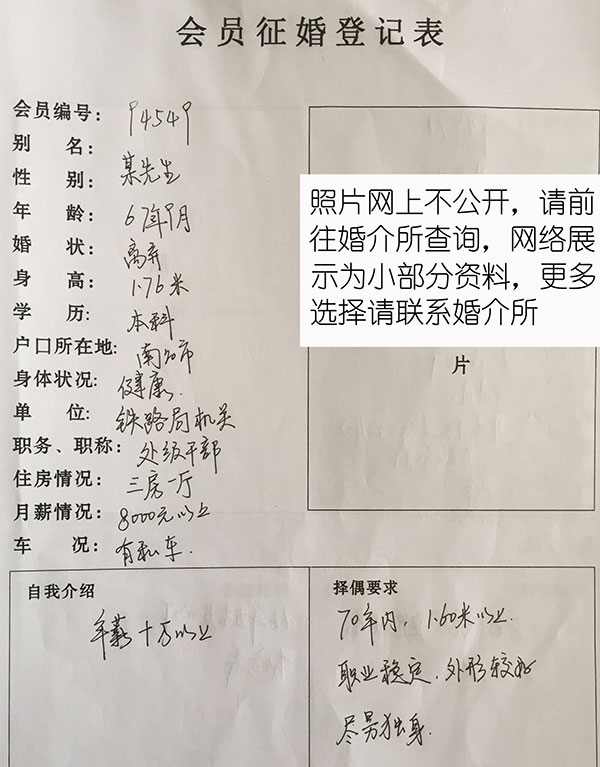 会员征婚登记表
会员编号： 94549
别 名： 某先生
性 别：
年 龄： 67年9月
婚 状： 离弃
身 高： 1.76米
学 历： 本科
户口所在地: 南宁市
身体状况: 健康.
单 位: 铁路局机关
职务、职称: 处级干部
住房情况: 三房一厅
月薪情况: 8000元以上
车 况: 有私车.
照片网上不公开，请前
往婚介所查询，网络展
示为小部分资料，更多
选择请联系婚介所
片
自我介绍
年薪十万以上
择偶要求
70年内，1.60米以上.
职业稳定.外形较好
尽另独身.